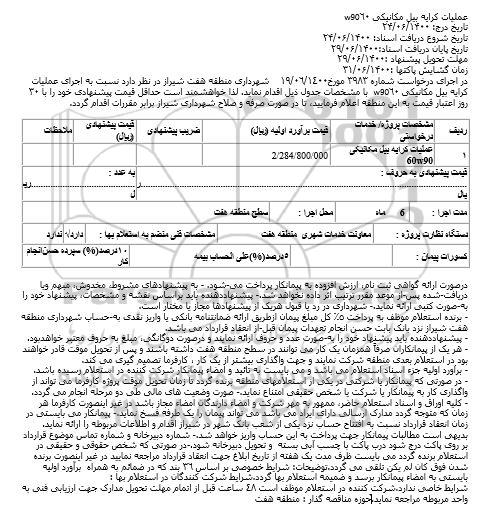 عملیات کرایه بیل مکانیکی w9٥٦٠
تاریخ درج: ۲۴/۰۶/۱۴۰۰
تاریخ شروع دریافت اسناد: ۲۴/۰۶/۱۴۰۰
تاریخ پایان دریافت اسناد: ۲۹/۰۶/۱۴۰۰
مهلت تحویل پیشنهاد : ۲۹/۰۶/۱۴۰۰
زمان گشایش پاکتها : ۳۱/۰۶/۱۴۰۰
در اجرای درخواست شماره ۳۹۸۳ مورخ ۱۹/۰٦/۱٤۰۰ شهرداری منطقه هفت شیراز در نظر دارد نسبت به اجرای عملیات
کرایه بیل مکانیکی w9٥٦٠ با مشخصات جدول ذیل اقدام نماید، لذا خواهشمند است حداقل قیمت پیشنهادی خود را با ۳۰
روز اعتبار قیمت به این منطقه اعلام فرمایید، تا در صورت صرفه و صلاح شهرداری شیراز برابر مقررات اقدام گردد.
ردیف مشخصات پروژه/ خدمات درخواستی قیمت برآورد اولیه (ریال) ضریب پیشنهادی قیمت پیشنهادی (ریال) ملاحظات
۱ عملیات کرایه بیل مکانیکی 60w90 2/284/800/000
قیمت پیشنهادی به حروف : ریال به عدد : ریال
مدت اجرا : 6 ماه محل اجرا : سطح منطقه هفت
دستگاه نظارت پروژه : معاونت خدمات شهری منطقه هفت مشخصات فنی منضم به استعلام بها : دارد/ ندارد
کسورات پیمان : ٥درصد(%)علی الحساب بیمه ۱۰درصد(%) سپرده حسن انجام کار
درصورت ارائه گواهی ثبت نام، ارزش افزوده به پیمانکار پرداخت می‌شود. - به پیشنهادهای مشروط، مخدوش، مبهم ویا
دریافت‌شده پس‌از موعد مقرر ترتیب اثر داده نخواهد شد.- پیشنهاددهنده باید براساس نقشه و مشخصات، پیشنهاد خود را
به‌صورت کتبی ارائه نماید.- شهرداری در رد یا قبول هریک از پیشنهادها مجاز یا مختار است.
- برنده استعلام موظف به پرداخت ٥% کل مبلغ پیمان ازطریق ارائه ضمانتنامه بانکی یا واریز نقدی به-حساب شهرداری منطقه
هفت شیراز نزد بانک بابت حسن انجام تعهدات پیمان قبل-از انعقاد قرارداد می باشد.
- پیشنهاددهنده باید پیشنهاد خود را به-صورت عدد و حروف ارائه نمایند و درصورت دوگانگی، مبلغ به حروف معتبر خواهدبود.
- هر یک از پیمانکاران صرفاً همزمان یک کار می توانند در سطح منطقه هفت داشته باشند و پس از تحویل موقت قادر خواهند
بود در استعلام بعدی منطقه شرکت نمایند و جهت واگذاری بیشتر از یک کار ، کارفرما تصمیم گیری می کند.
- برآورد اولیه جزء اسناد استعلام می باشد و می بایست به تائید و امضاء پیمانکار شرکت کننده در استعلام رسیده باشد.
- در صورتی که پیمانکار یا شرکتی در یکی از استعلامهای منطقه برنده گردد تا زمان تحویل موقت پروژه کارفرما می تواند از
واگذاری کار به پیمانکار یا شرکت یا شخص حقیقی امتناع نماید.- صورت وضعیت های مالی طی دو مرحله انجام می گردد.
- کلیه اوراق و اسناد استعلام حاضر، ممهور به مهر شرکت و امضاء دارندگان امضاء مجاز باشد در غیر اینصورت کارفرما هر
زمان که متوجه گردد مدارک ارسالی دارای ایراد می باشد می تواند پیمان را یک طرفه فسخ نماید.- پیمانکار می بایستی در
زمان انعقاد قرارداد نسبت به افتتاح حساب نزد یکی از شعب بانک شهر در شیراز اقدام و اطلاعات مربوطه را ارائه نماید.
بدیهی است مطالبات پیمانکار جهت پرداخت به این حساب واریز خواهد شد.- شماره دبیرخانه و شماره تماس موضوع قرارداد
بر روی پاکت درج شود درب پاکت با چسب آبی بسته و تحویل دبیرخانه شود.-در صورتی که شخص حقوقی و حقیقی در
استعلام برنده گردد می بایست ظرف مدت یک هفته از تاریخ ابلاغ جهت انعقاد قرارداد مراجعه نماید در غیر اینصورت برنده
شدن فوق کان لم یکن تلقی می گردد.توضیحات: شرایط خصوصی بر اساس ۳٦ بند که در ضمائم به همراه برآورد اولیه
بایستی به امضاء پیمانکار برسد و ضمیمه استعلام بها گردد.شرایط شرکت کنندگان در استعلام بها :
شرایط خاصی ندارد.شرکت کننده در استعلام موظف است ٤۸ ساعت قبل از اتمام مهلت تحویل مدارک جهت ارزیابی فنی به
واحد مربوطه مراجعه نماید.حوزه مناقصه گذار : منطقه هفت